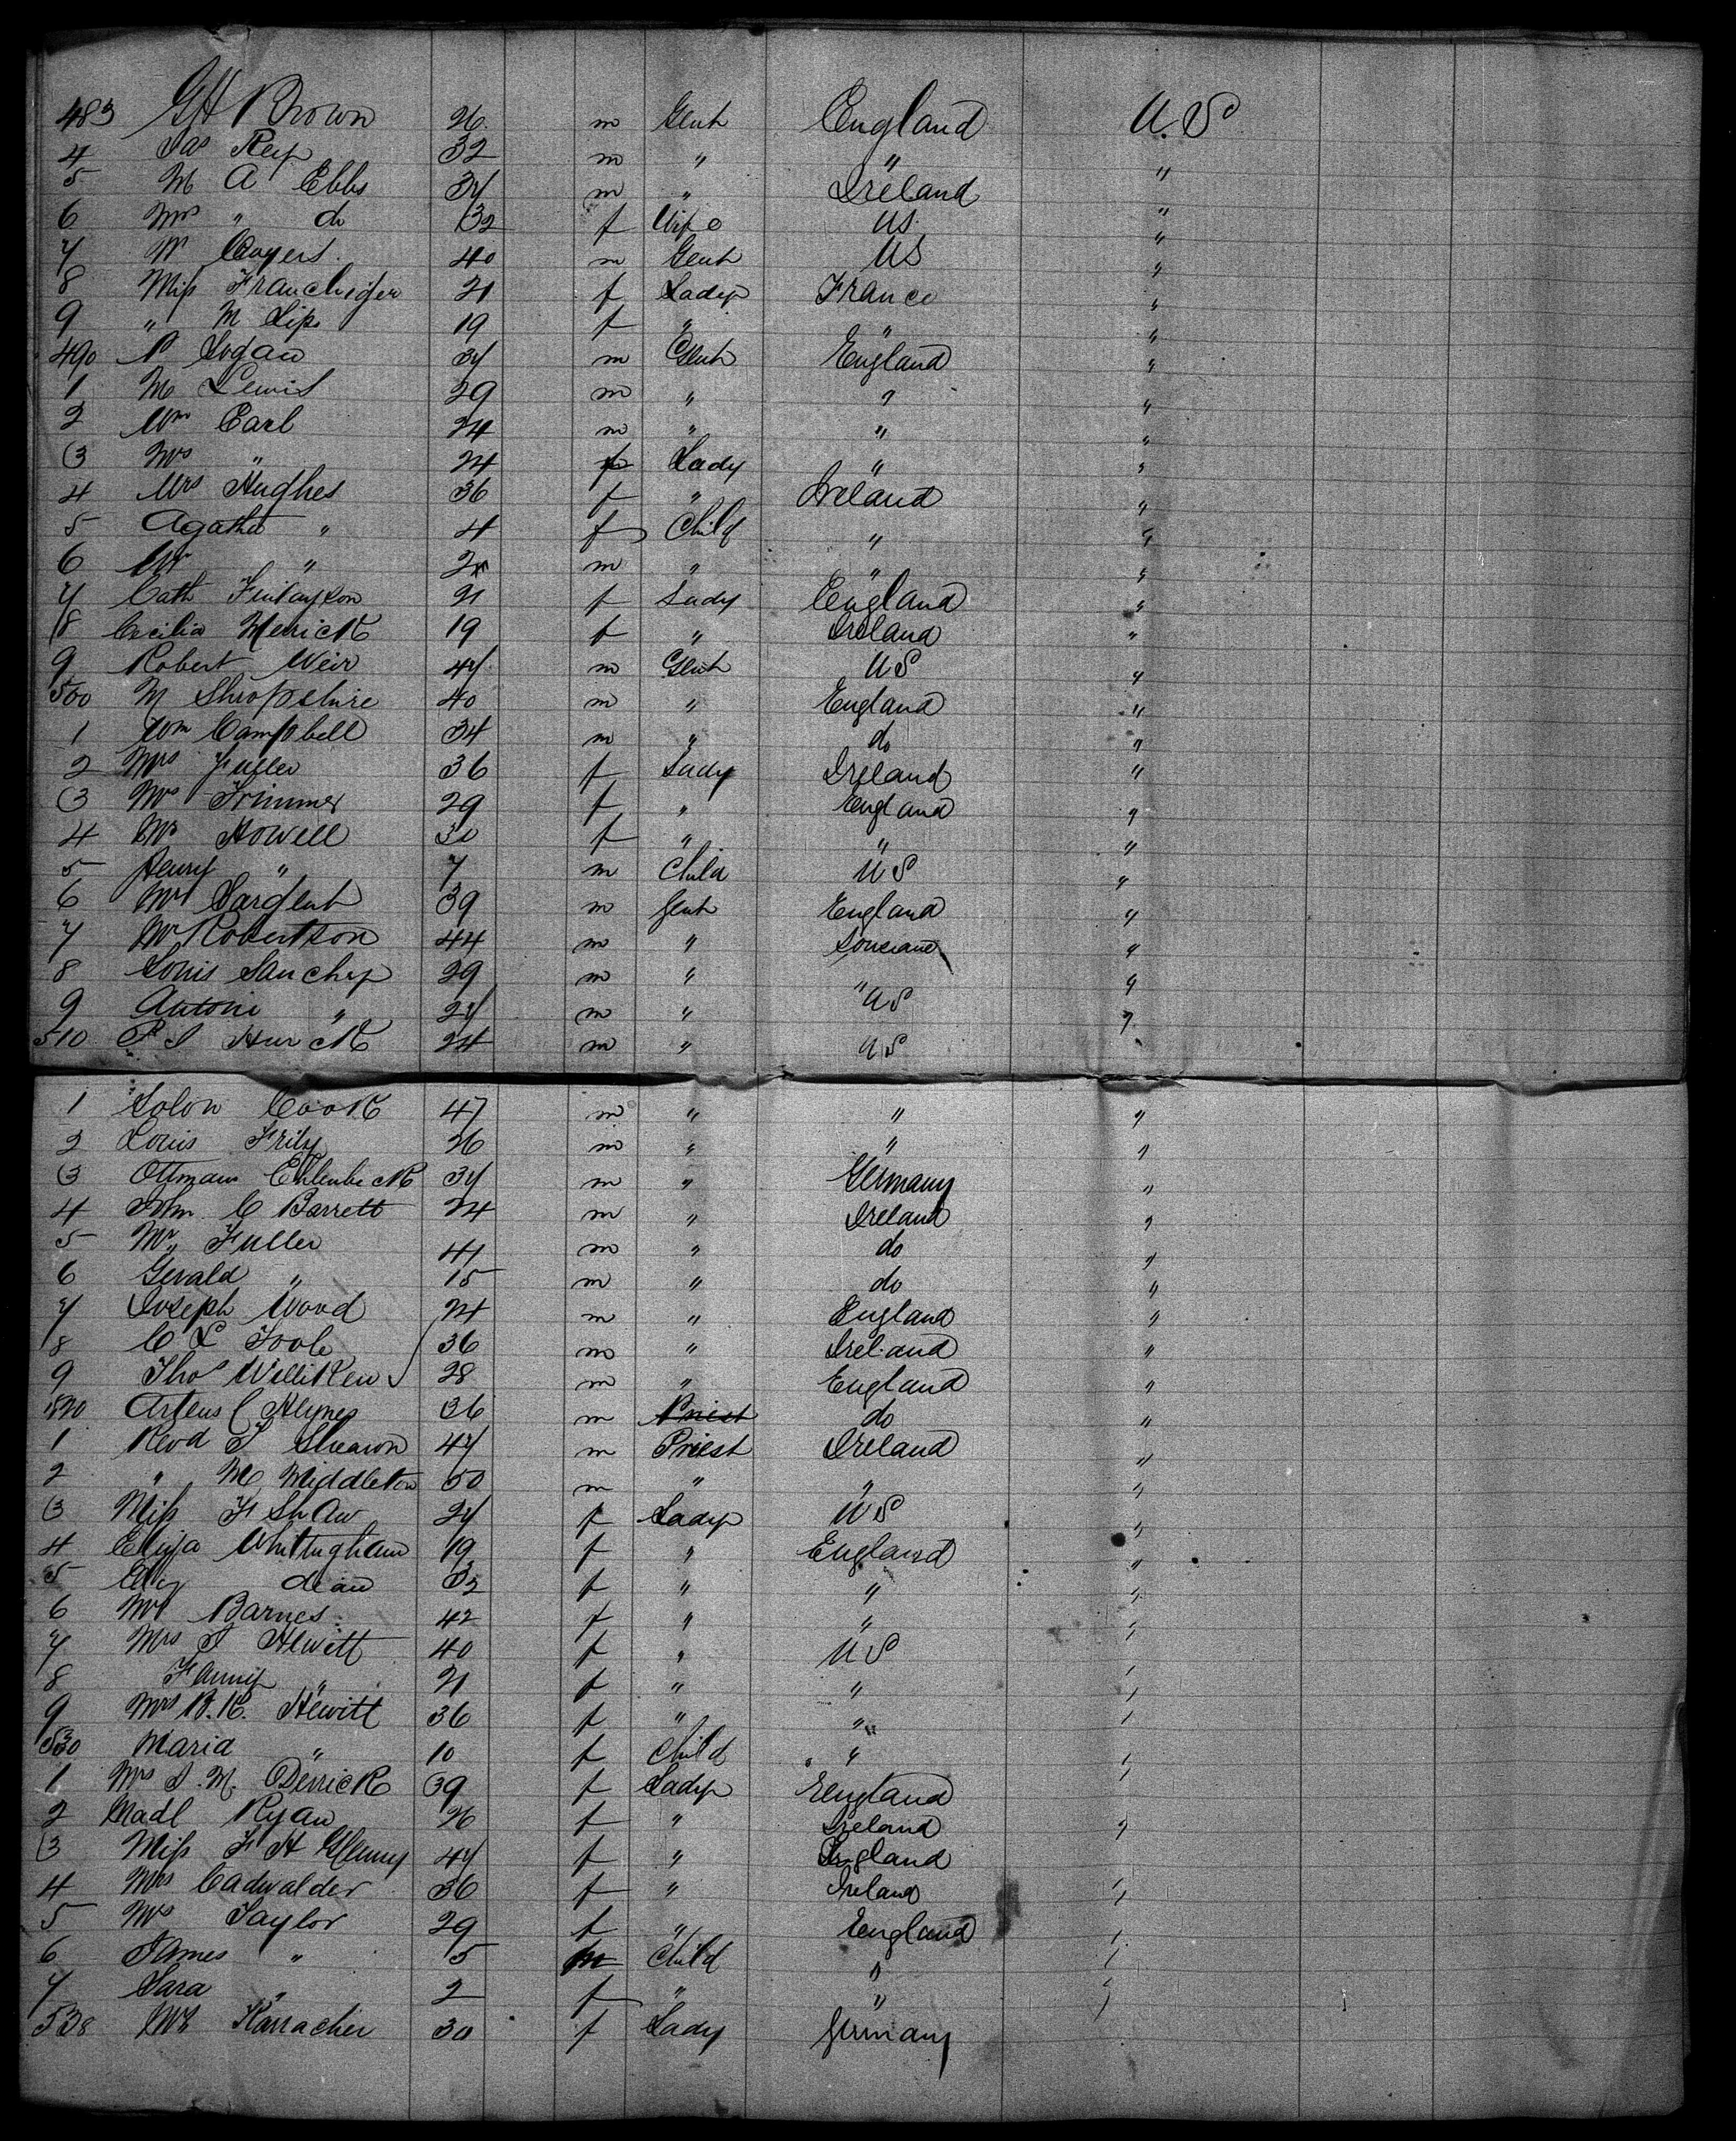 483 GH Brown 26 m Gent England U.S
4 Jas 32 m " " "
5 M A Ebbs 37 m " Ireland "
6 Mrs " do 32 f Wife US "
7 Mr Coyers 40 m Gent US "
8 Miss 21 f Lady France "
9 " M 19 f " " "
490 P Logan 37 m Gent England "
1 M Lewis 29 m " " "
2 Wm Earl 24 m " " "
3 Mrs " 24 f Lady " "
4 Mrs Hughes 36 f " Ireland "
5 Agatha " 4 f Child " "
6 " m " " "
7 Cath Finlayson 21 f Lady England "
8 Cecilia Merrick 19 f " Ireland "
9 Robert Weir 47 m Gent US "
500 M Shropshire 40 m " England "
1 Wm Campbell 34 m " do "
2 Mrs Fuller 36 f Lady Ireland "
3 Mrs Trimmer 29 f " England "
4 Mrs Howell 30 f " " "
5 Henry " 7 m Child US "
6 Mr Sargent 39 m Gent England "
7 Mr Robertson 44 m " "
8 Louis 29 m " " "
9 Antoni " 27 m " US "
510 m " US
1 Solon Cook 47 m " " "
2 Louis 26 m " " "
3 Ottmann Ehlenbeck 37 m " Germany "
4 John C Barrett 24 m " Ireland "
5 Mr " Fuller 41 m " do "
6 Gerald " 15 m " do "
7 Joseph Wood 24 m " England "
8 C L Toole 36 m " Ireland "
9 Thos Williken 28 m " England "
520 36 m Priest do "
1 Revd T 47 m Priest Ireland "
2 " M Middleton 50 m " " "
3 Miss F Shaw 27 f Lady US "
4 Eliza Whittingham 19 f " England "
5 dean 32 f " " "
6 Mrs Barnes 42 f " " "
7 Mrs J Hewitt 40 f " US "
8 Fanny " 21 f " " "
9 Mrs B.K. Hewitt 36 f " " "
530 Maria " 10 f Child " "
1 Mrs J. M. Derrick 39 f Lady England "
2 Madl Ryan 26 f " Ireland "
3 Miss F H Glenny 47 f " England
4 Mrs Cadwalder 36 f " Ireland "
5 Mrs Taylor 29 f " England "
6 James " 5 m Child " "
7 Sara " 2 f " " "
538 Mrs Karracher 30 f Lady Germany